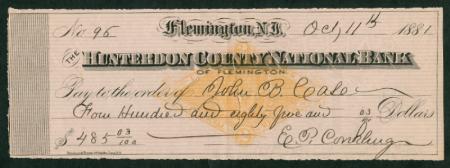 No. 96 Flemington, N.J. Oct 11th 1881
THE HUNTERDON COUNTY NATIONAL BANK
OF FLEMINGTON
Pay to the order of John B Coale
Four Hundred and eighty five and 03 Dollars
$ 485 03/100 E. P. Conkling